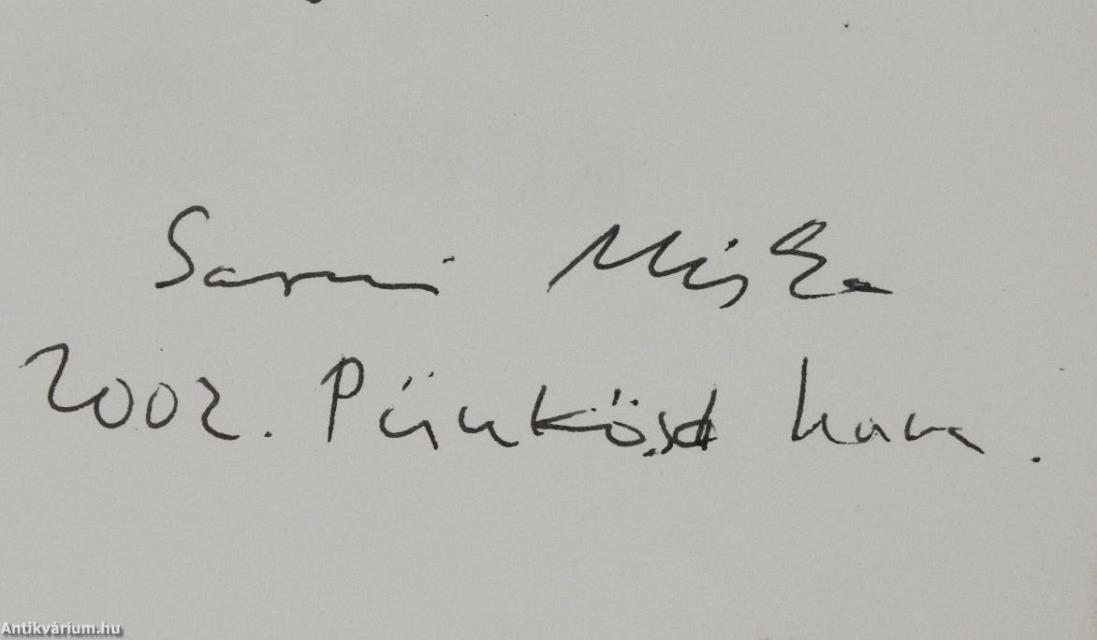 Sarusi Miska
2002. Pünkösd hava.
Antikvárium.hu